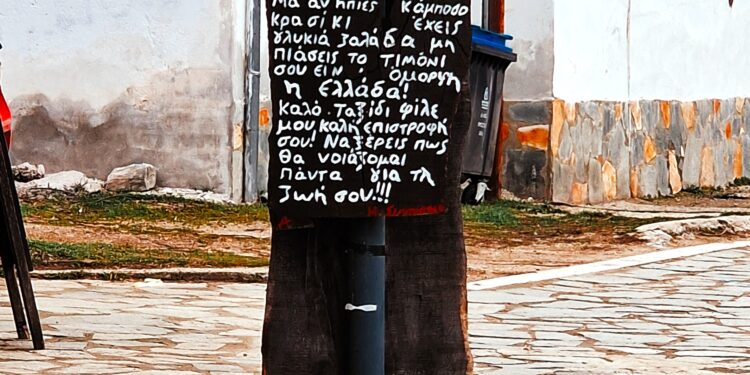 Μα αν ήπιες κάμποσο
κρασί κι έχεις
γλυκιά ζαλάδα μη
πιάσεις το τιμόνι
σου ειν' όμορφη
η Ελλάδα!
Καλό Ταξίδι φίλε
μου καλή επιστροφή
σου! Να ξέρεις πως
θα νοιάζομαι
πάντα για τη
ζωή σου!!!